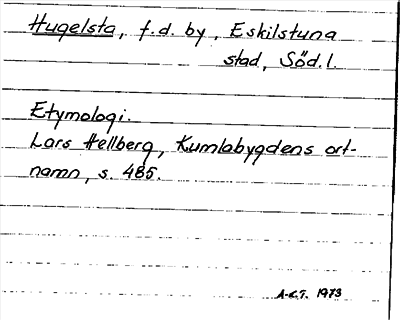 Hugelsta, f.d. by, Eskilstuna
stad, Söd.l.
Etymologi.
Lars Hellberg, Kumlabygdens ort-
namn, s. 485.
A-C.T. 1973